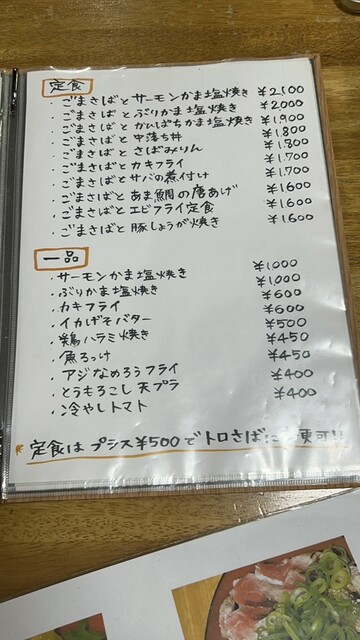 定食
・ごまさばとサーモンかま塩焼き ¥2,100
・ごまさばとぶりかま塩焼き ¥2,000
・ごまさばとかんぱちかま塩焼き ¥1,900
・ごまさばと中落ち丼 ¥1,800
・ごまさばとさばみりん ¥1,800
・ごまさばとカキフライ ¥1,700
・ごまさばとサバの煮付け ¥1,700
・ごまさばとあま鯛の唐あげ ¥1600
・ごまさばとエビフライ定食 ¥1600
・ごまさばと豚しょうが焼き ¥1600
一品
・サーモンかま塩焼き ¥1,000
・ぶりかま塩焼き ¥1,000
・カキフライ ¥600
・イカげそバター ¥600
・鶏ハラミ焼き ¥500
・魚ろっけ ¥450
・アジなめろうフライ ¥450
・とうもろこし天プラ ¥400
・冷やしトマト ¥400
定食は プラス¥500でトロさばに更可!!